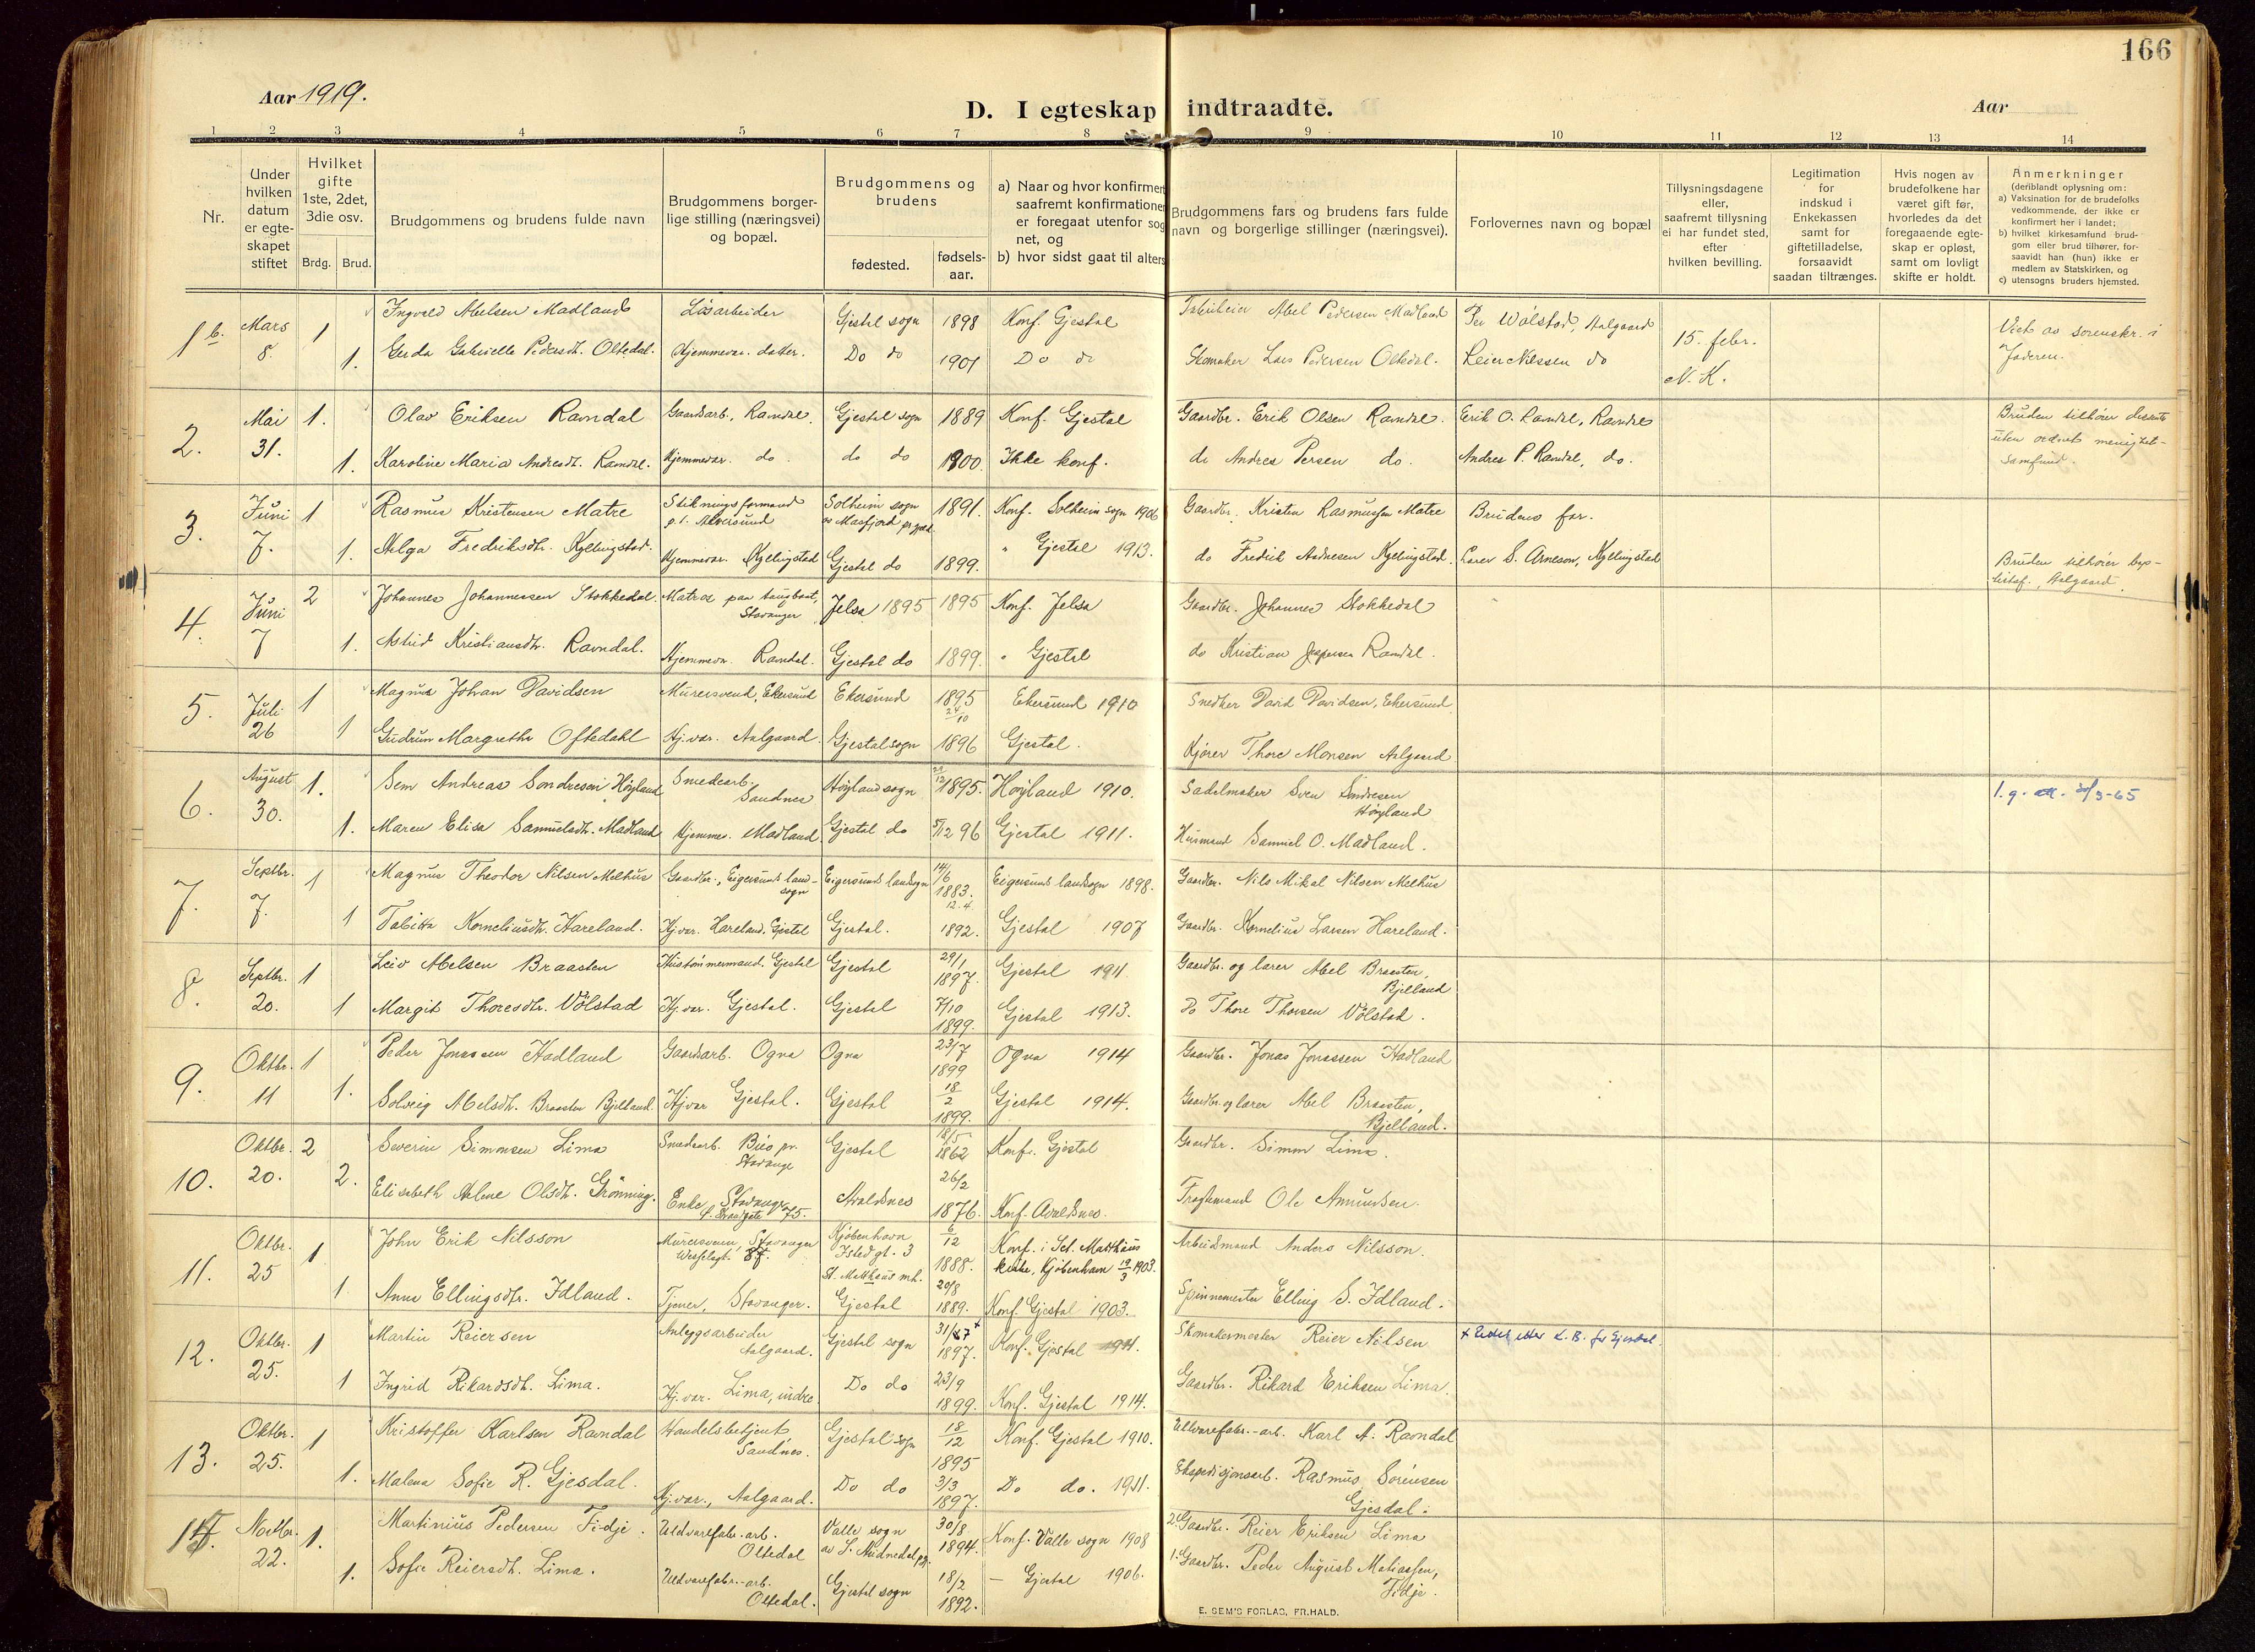 166
Aar 1919.
D. I egteskap indtraadte.
Aar
1 2 3 4 5 6 7 8 9 10 11 12 13 14
Nr.
Under hvilken datum er egte-
skapet stiftet
Hvilket gifte 1ste, 2det, 3die osv.
Brdg. Brud.
Brudgommens og brudens fulde navn
Brudgommens borger-
lige stilling (næringsvei)
og bopæl.
Brudgommens og brudens
fødested.
fødsels-
aar.
a) Naar og hvor konfirmert
saafremt konfirmationen
er foregaat utenfor sog
net, og
b) hvor sidst gaat til alters
Brudgommens fars og brudens fars fulde
navn og borgerlige stillinger (næringsvei).
Forlovernes navn og bopæl
Tillysningsdagene
eller,
saafremt tillysning
ei har fundet sted,
efter
hvilken bevilling.
Legitimation
for
indskud i
Enkekassen
samt for
giftetilladelse,
forsaavidt
saadan tiltrænges.
Hvis nogen av
brudefolkene har
været gift før,
hvorledes da det
foregaaende egte-
skap er opløst,
samt om lovligt
skifte er holdt.
Anmerkninger
(deriblandt oplysning om:
a) Vaksination for de brudefolks
vedkommende, der ikke er
konfirmert her i landet;
b) hvilket kirkesamfund brud-
gom eller brud tilhører, for-
saavidt han (hun) ikke er
medlem av Statskirken, og
c) utensogns bruders hjemsted.
1 b. Mars 8. 1 Ingvald Abelsen Madland Løsarbeider Gjestal sogn 1898 Konf. Gjestal Abel Pedersen Madland Per Wølstad, Aalgaard 15. febr. N. K. Viet av sorenskr. i Jæderen.
1. Gerda Gabrielle Pedersdt. Oltedal. Hjemmevær. datter. Do do 1901 Do do Skomaker Lars Pedersen Oltedal. Reier Nilssen do
2. Mai 31. 1. Olav Eriksen Ravndal Gaardsarb., Ravndal. Gjestal sogn 1889 Konf. Gjestal Gaardbr. Erik Olsen Ravndal. Erik O. Ravndal, Ravndal Bruden tilhører dissente uten ordnet menighet-samfund.
1. Karoline Maria Andreasdt. Ravndal. Hjemmevær. do. do do 1900. Ikke konf. do Andreas Persen do. Andreas P. Ravndal, do.
3. Juni 7. 1 Rasmus Kristensen Matre Stikningsformand p. t. Alversund Solheim sogn av Masfjord pr.gjeld 1891. Konf. Solheim sogn 1906 Gaardbr. Kristen Rasmussen Matre Brudens far.
1. Helga Fredriksdt. Kyllingstad. Hjemmevær. Kyllingstad Gjestal do 1899. " Gjestal 1913. do Fredrik Aadnesen Kyllingstad. Lærer S. Arneson, Kyllingstad Bruden tilhører bap-tistsf., Aalgaard.
4. Juni 7 2 Johannes Johannessen Stokkedal. Matros paa taugbaat, Stavanger Jelsa 1895 1895 Konf. Jelsa Gaardbr. Johannes Stokkedal
1. Astrid Kristiansdt. Ravndal. Hjemmevær. Ravndal. Gjestal do 1899. " Gjestal do Kristian Jespersen Ravndal.
5. Juli 26 1 Magnus Johan Davidsen Murersvend, Ekersund Ekersund 1895 24/10 Ekersund 1910 Snedker David Davidsen, Ekersund
1 Gudrun Margrethe Oftedahl Hj.vær. Aalgaard. Gjestal sogn 1896 Gjestal. Kjører Thore Monsen Aalgaard
6. August 30. 1. Sem Andreas Sondresen Høyland Smedearb. Sandnes Høyland sogn 1895. Høyland 1910. Sadelmaker Sven Sondresen Høyland
1. Maren Elisa Samuelsdt. Madland Hjemmev. Madland Gjestal do 5/12 96 Gjestal 1911. Husmand Samuel O. Madland.
7. Septbr. 7. 1 Magnus Theodor Nilsen Melhus Gaardbr., Eigersunds land-sogn Eigersunds landsogn 14/6 1883. Eigersunds landsogn 1898. Gaardbr. Nils Mikal Nilsen Melhus
1 Tabitta Korneliusdt. Hareland. Hj.vær. Hareland. Gjestal Gjestal. 12.4. 1892. Gjestal 1907 Gaardbr. Kornelius Larsen Hareland.
8. Septbr. 20. 1 Leiv Abelsen Braasten Hustømmermand. Gjestal Gjestal 29/1 1897. Gjestal 1911. Gaardbr. og lærer Abel Braasten, Bjelland
1 Margit Thoresdtr. Vølstad Hj.vær. Gjestal. Gjestal 7/10 1899. Gjestal 1913. Do Thore Thorsen Vølstad.
9. Oktbr. 11 1 Peder Jonassen Hadland Gaardsarb. Ogna Ogna 23/7 1899 Ogna 1914 Gaardbr. Jonas Jonassen Hadland
1. Solveig Abelsdt. Braasten Bjelland. Hj.vær Gjestal. Gjestal 18/2 1899. Gjestal 1914. Gaardbr. og lærer Abel Braasten, Bjelland.
10. Oktbr. 20. 2 Severin Simonsen Lima Smedearb. Buø pr. Stavanger Gjestal 18/5 1862 Konf. Gjestal Gaardbr. Simon Lima.
2. Elisabeth Helene Olsdt. Grønning. Enke, Stavanger 75. Avaldsnes 26/2 1876. Konf. Avaldsnes. Ole Amundsen.
11. Oktbr. 25 1 John Erik Nilsson Murersvenn, Stavanger Kjøbenhavn Istedgt. 3 St. Matthæus mh. 6/12 1888. Konf. i Sct. Matthæus kirke, Kjøbenhavn 19/3 1903. Arbeidsmand Anders Nilsson.
1 Anna Ellingsdtr. Idland. Tjener, Stavanger. Gjestal 20/8 1889. Konf. Gjestal 1903. Spinnemester Elling S. Idland.
12. Oktbr. 25. 1 Martin Reiersen Anlegsarbeider Aalgaard. Gjestal sogn 31/7 + 1897. Konf. Gjestal 1911. Skomakermester Reier Nilsen
1 Ingrid Rikardsdt. Lima. Hj.vær. Lima, indre Do do 23/9 1899. Konf. Gjestal 1914. Gaardbr. Rikard Eriksen Lima.
13. Oktbr. 25. 1 Kristoffer Karlsen Ravndal Handelsbetjent Sandnes. Gjestal sogn 18/12 1895 Konf. Gjestal 1910. Uldvarefabr.-arb. Karl A. Ravndal
1. Malena Sofie R. Gjesdal. Hj.vær., Aalgaard. Do do 3/3 1897. Do do. 1911. Ekspedisjonsarb. Rasmus Sørensen Gjesdal.
14. Novbr. 22. 1. Martinius Pedersen Tidje. Uldvarefabr.-arb. Oltedal Valle sogn av S. Audnedal pr. 30/8 1894. Konf. Valle sogn 1908 2. Gaardbr. Reier Eriksen Lima
1. Sofie Reiersdt. Lima. Uldvarefabr.-arb. Oltedal. Gjestal sogn 18/2 1892. — Gjestal 1906. 1. Gaardbr. Peder August Matiassen, Tidje.
E. SEM'S FORLAG, FR.HALD.